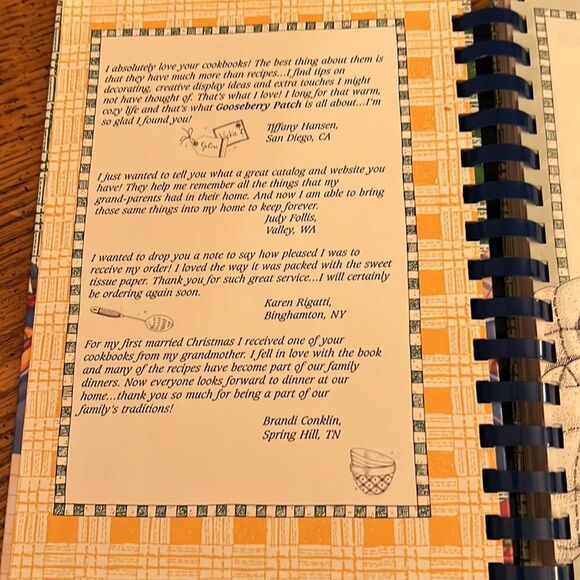 I absolutely love your cookbooks! The best thing about them is
that they have much more than recipes...I find tips on
decorating, creative display ideas and extra touches I might
not have thought of. That's what I love! I long for that warm,
cozy life and that's what Gooseberry Patch is all about...I'm
so glad I found you!
Tiffany Hansen,
San Diego, CA
I just wanted to tell you what a great catalog and website you
have! They help me remember all the things that my
grand-parents had in their home. And now I am able to bring
those same things into my home to keep forever.
Judy Follis,
Valley, WA
I wanted to drop you a note to say how pleased I was to
receive my order! I loved the way it was packed with the sweet
tissue paper. Thank you for such great service...I will certainly
be ordering again soon.
Karen Rigatti,
Binghamton, NY
For my first married Christmas I received one of your
cookbooks from my grandmother. I fell in love with the book
and many of the recipes have become part of our family
dinners. Now everyone looks forward to dinner at our
home...thank you so much for being a part of our
family's traditions!
Brandi Conklin,
Spring Hill, TN